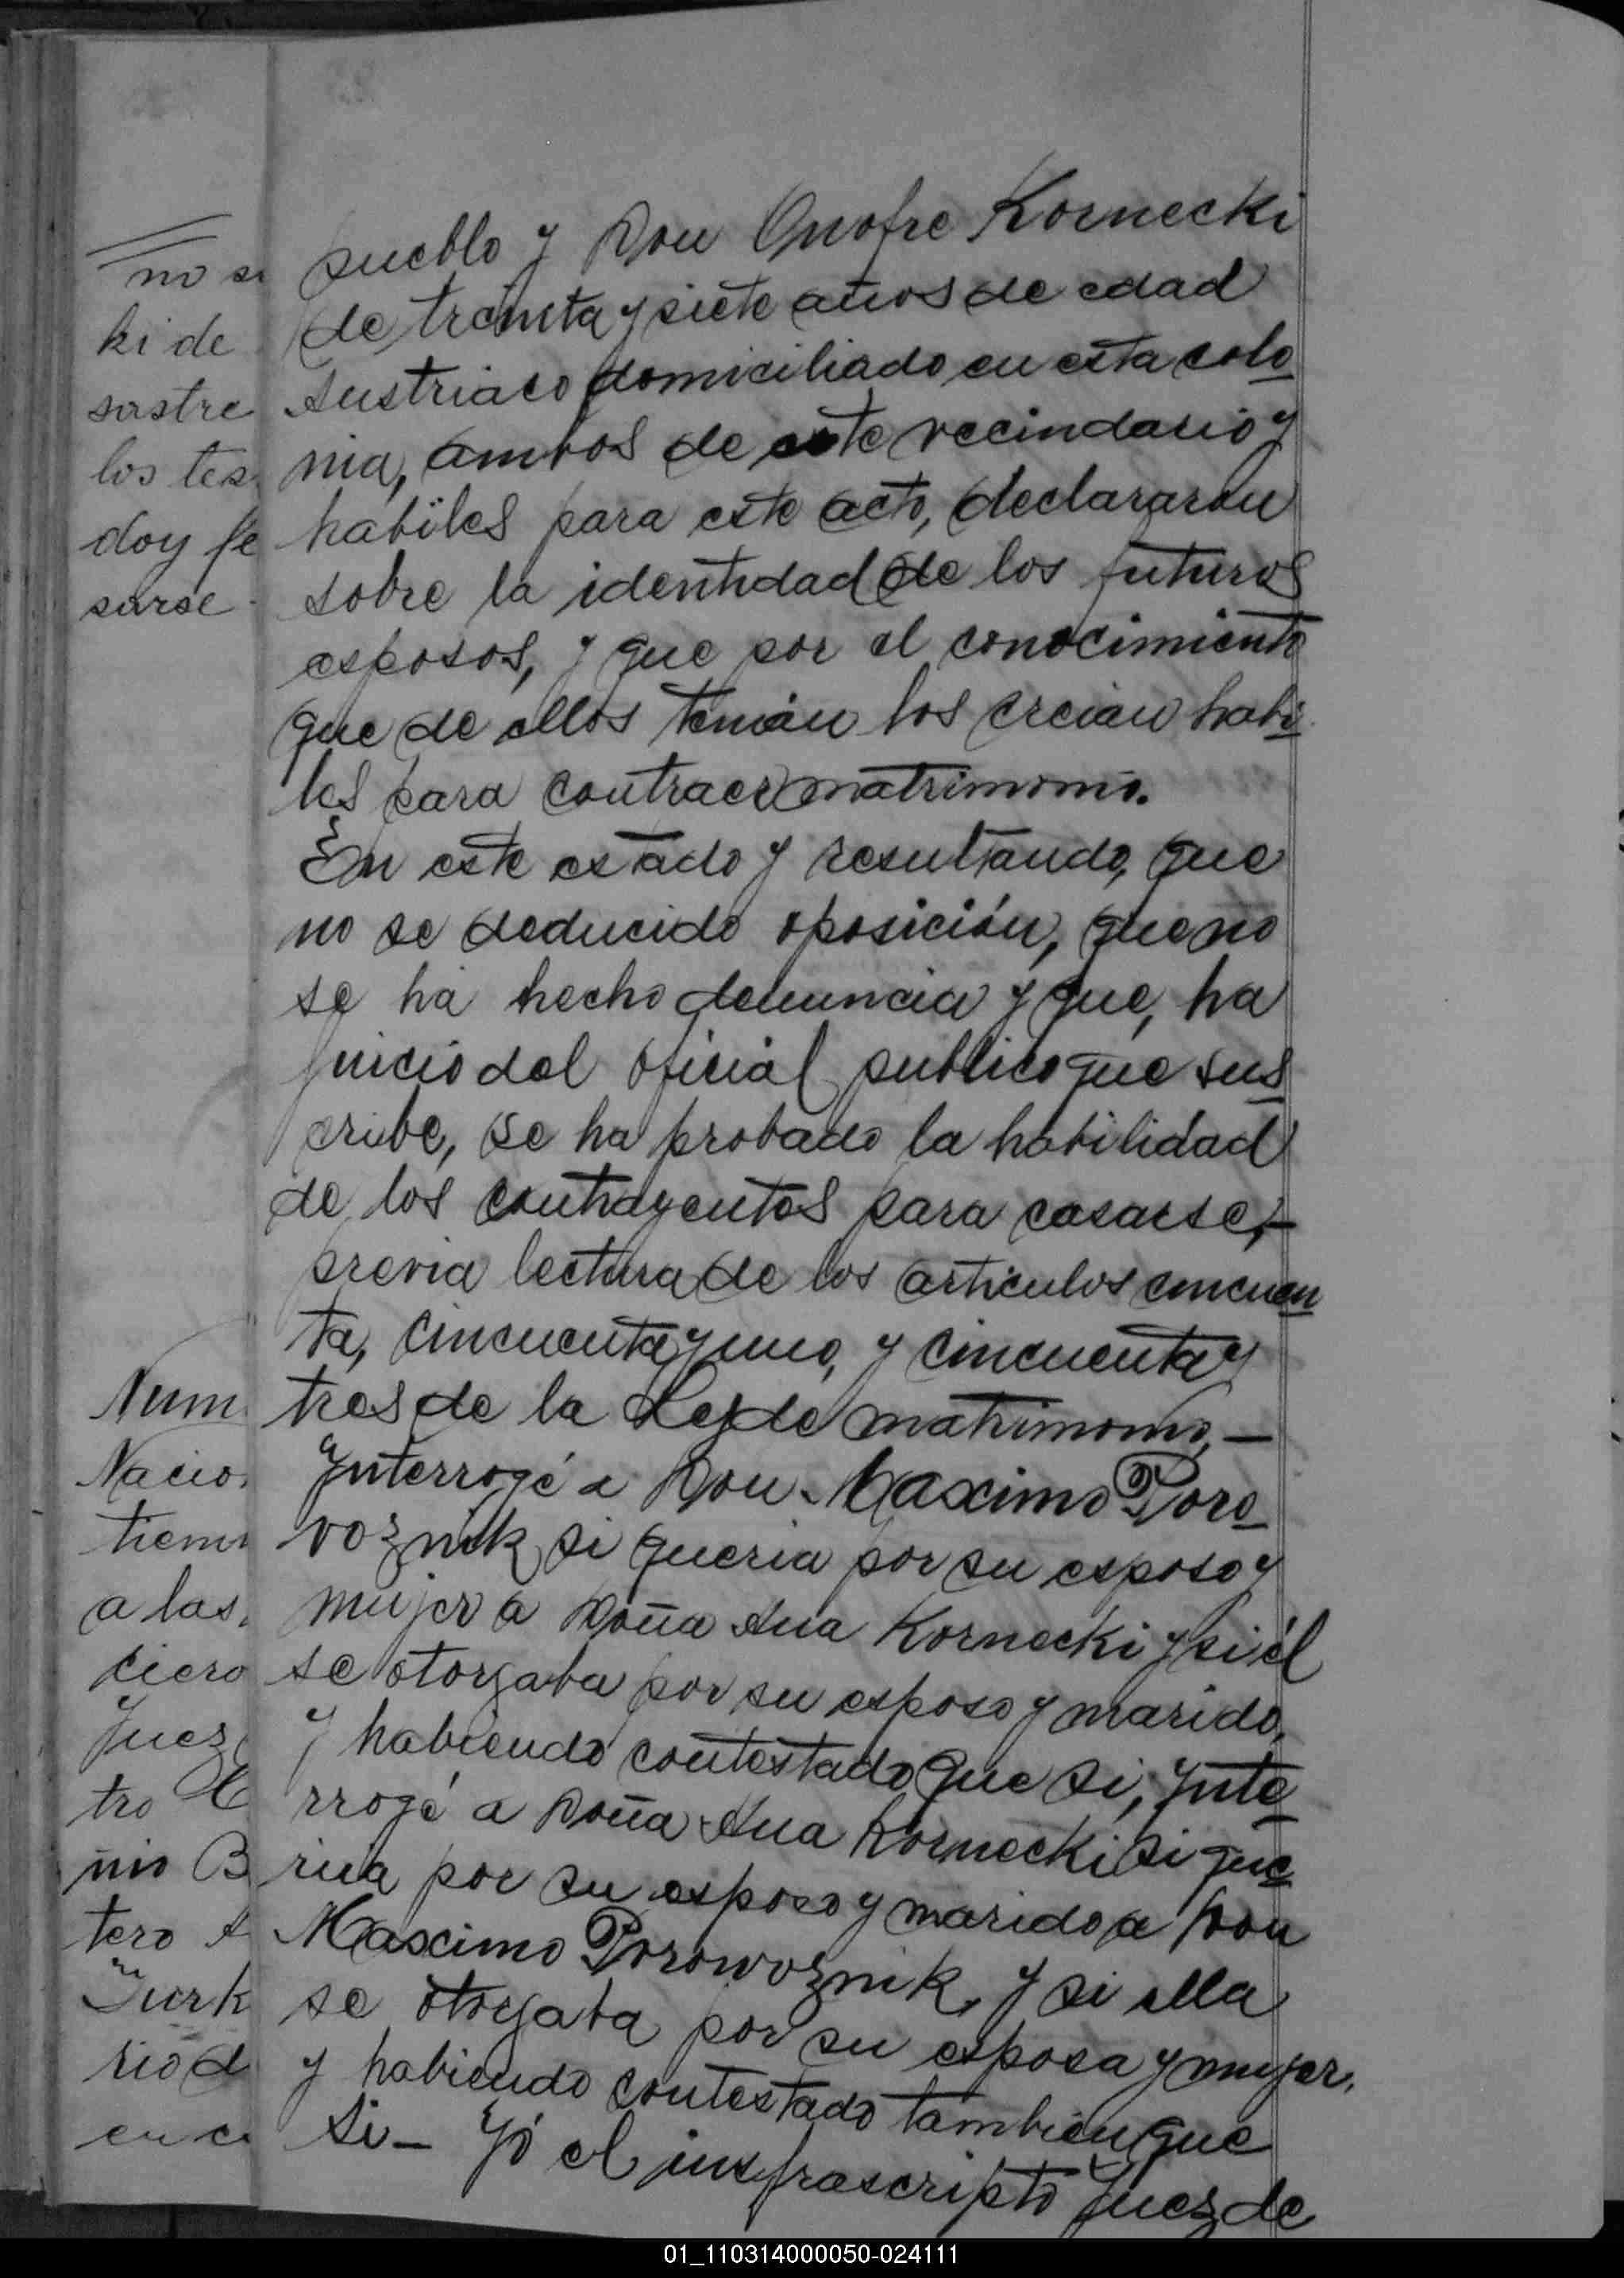 no se
ki de
sastre
los tes
doy fe
sarse
Num
Nacio
tiem
a las
ciero
Juez
tro
nio B
tero A
Turk
rio d
en c
pueblo y Don Onofre Kornecki
de treinta y siete años de edad
Austriaco domiciliado en esta colo
nia, ambos de este vecindario y
habiles para este acto, declararon
sobre la identidad de los futuros
esposos, y que por el conocimiento
que de ellos tenian los creian habi
les para contraer matrimonio.
En este estado y resultando, que
no se deducido oposición, que no
se ha hecho denuncia y que, ha
juicio del oficial publico que sus
cribe, se ha probado la habilidad
de los contrayentes para casarse,-
previa lectura de los articulos cincuen
ta, cincuenta y uno, y cincuenta y
tres de la Ley de matrimonio,—
Interrogé a Don Maximo Poro
voznik si queria por su esposo y
mujer a Doña Ana Kornecki y si él
se otorgaba por su esposo y marido,
y habiendo contestado que si, Inte
rrogé a Doña Ana Kornecki si que
riia por su esposo y marido a Don
Maximo Porowoznik, y si ella
se otorgaba por su esposa y mujer.
y habiendo contestado tambien que
Si- Yó el insfrascripto Juez de
01_110314000050-024111